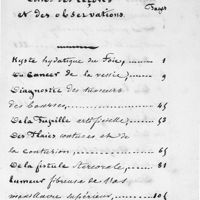 des leçons
et des observations.
Pages
Kyste hydatique du Foie, 1
Du Cancer de la vessie, 9
Diagnostic des tumeurs
des bourses, 45
De la Pupille artificielle, 53
Des Plaies contuses et de
la contusion, 65
De la fistule stercorale, 81
tumeur fibreuse de l'os
maxillaire supérieur, 104